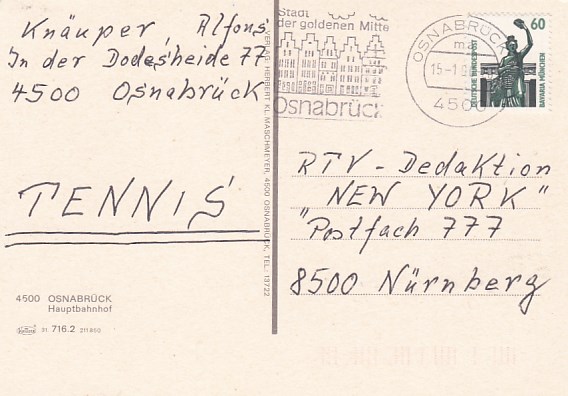 Knäuper, Alfons
In der Dodesheide 77
4500 Osnabrück
TENNIS
4500 OSNABRÜCK
Hauptbahnhof
31 716.2 211800
VERLAG: HERBERT KL.-MASCHMEYER, 4500 OSNABRÜCK, TEL. 13722
Stadt
der goldenen Mitte
Osnabrück
OSNABRÜCK
15-1
4500
60
DEUTSCHE BUNDESPOST
BAVARIA MÜNCHEN
RTV-Dedaktion
"NEW YORK"
"Postfach 777
8500 Nürnberg